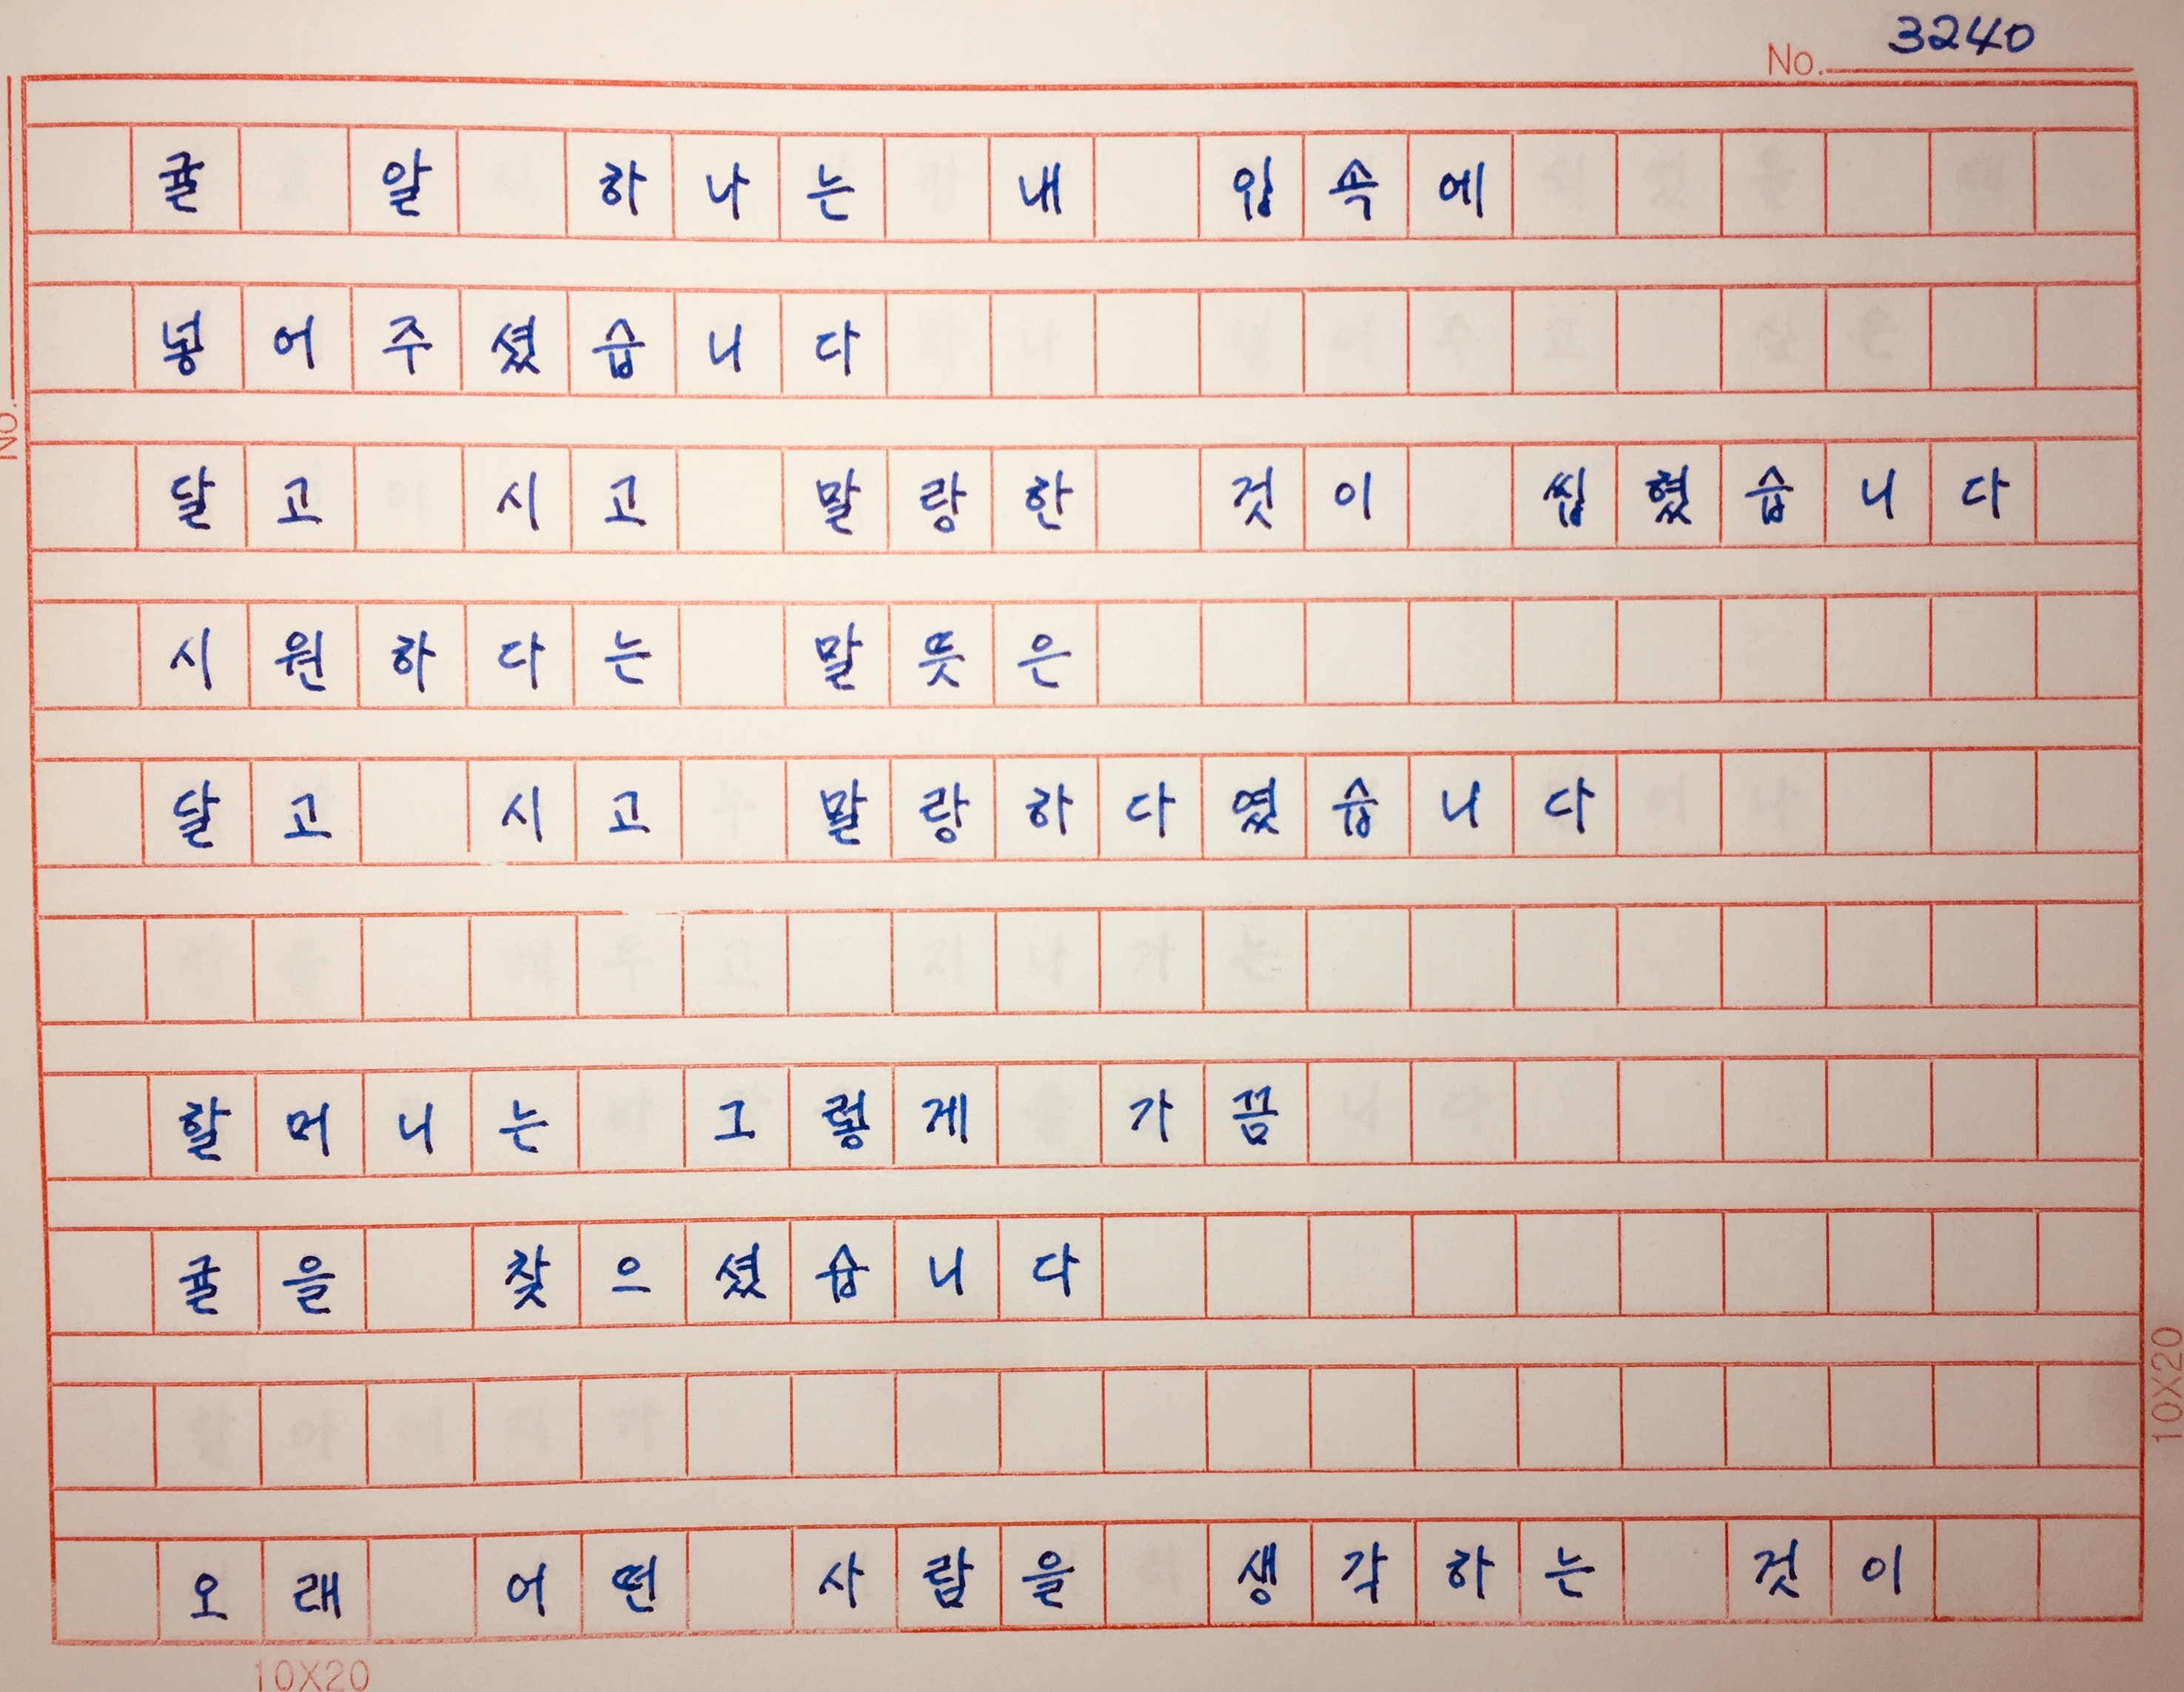 No. 3240
귤 알 하나는 내 입속에
넣어주셨습니다
달고 시고 말랑한 것이 씹혔습니다
시원하다는 말뜻은
달고 시고 말랑하다였습니다
할머니는 그렇게 가끔
귤을 찾으셨습니다
오래 어떤 사람을 생각하는 것이
No.
10X20
10X20